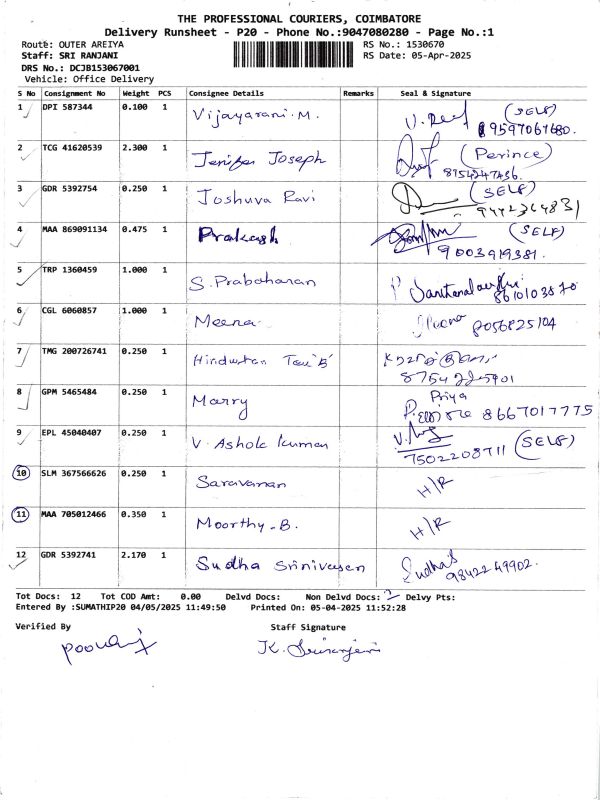 THE PROFESSIONAL COURIERS, COIMBATORE
Delivery Runsheet - P20 - Phone No.:9047080280 - Page No.:1
Route: OUTER AREIYA
RS No.: 1530670
Staff: SRI RANJANI
RS Date: 05-Apr-2025
DRS No.: DCJB153067001
Vehicle: Office Delivery
S No Consignment No Weight PCS Consignee Details Remarks Seal & Signature
1 DPI 587344 0.100 1 Vijayarani.M. (SELF)
9597067680.
2 TCG 41620539 2.300 1 Jenifer Joseph (Perince)
8754247436.
3 GDR 5392754 0.250 1 Joshuva Ravi (SELF)
9442364831
4 MAA 869091134 0.475 1 Prakash (SELF)
9003919381.
5 TRP 1360459 1.000 1 S. Prabaharan
8610103870
6 CGL 6060857 1.000 1 Meena 8056825104
7 TMG 200726741 0.250 1 Hindustan
8 GPM 5465484 0.250 1 Marry Priya
8667017775
9 EPL 45040407 0.250 1 V. Ashok Kumar
7502208711 (SELF)
10 SLM 367566626 0.250 1 Saravanan H/R
11 MAA 705012466 0.350 1 Moorthy-B. H/R
12 GDR 5392741 2.170 1 Sudha Srinivasen Sudha S
9842249902.
Tot Docs: 12 Tot COD Amt: 0.00 Delvd Docs: Non Delvd Docs: 2 Delvy Pts:
Entered By :SUMATHIP20 04/05/2025 11:49:50 Printed On: 05-04-2025 11:52:28
Verified By Staff Signature